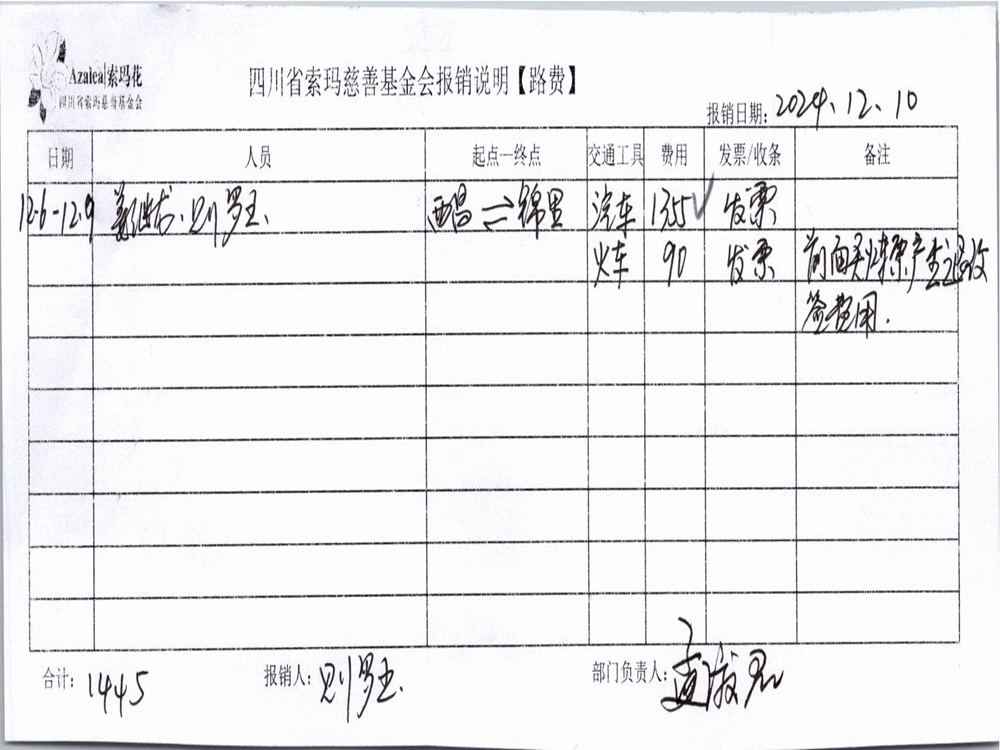 Azalea|索玛花
四川省索玛慈善基金会
四川省索玛慈善基金会报销说明【路费】
报销日期: 2024.12.10
日期 人员 起点—终点 交通工具 费用 发票/收条 备注
12.6-12.9 则罗玉. 西昌⇌锦里 汽车 1355✓ 发票
火车 90 发票 前面买火车票产生退改
签费用.
合计: 1445 报销人: 则罗玉. 部门负责人: